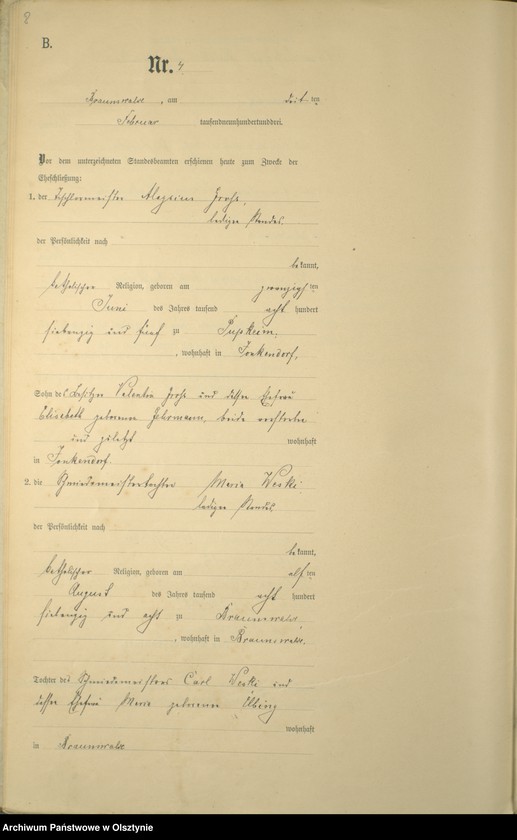 8
B.
Nr. 4
Braunswalde, am dritten
Februar tausendneunhundertunddrei.
Vor dem unterzeichneten Standesbeamten erschienen heute zum Zwecke der
Eheschließung:
1. der Tischlermeister Aloysius
ledigen Standes,
der Persönlichkeit nach
bekannt,
katholischer Religion, geboren am zwanzigsten
Juni des Jahres tausend acht hundert
siebenzig und fünf zu
, wohnhaft in Jonkendorf,
Sohn des Besitzer Valentin und dessen Ehefrau
Elisabeth geborenen beide verstorben
und zuletzt wohnhaft
in Jonkendorf.
2. die Schmiedemeistertochter Maria
ledigen Standes
der Persönlichkeit nach
bekannt,
katholischer Religion, geboren am elften
August des Jahres tausend acht hundert
siebenzig und acht zu Braunswalde,
, wohnhaft in Braunswalde.
Tochter des Schmiedemeisters Carl und
dessen Ehefrau Maria geborenen
wohnhaft
in Braunswalde
Archiwum Państwowe w Olsztynie